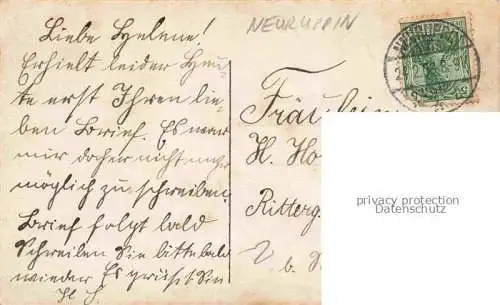 Liebe Helene!
Erhielt leider Heu-
te erst Ihren lie-
ben Brief. Es war
mir daher nicht mehr
möglich zu schreiben.
Brief folgt bald
Schreiben Sie bitte bald
wieder Es grüßt Sie
NEURUPPIN
Fräulein
H. Ho
Ritterg
b.
privacy protection
Datenschutz